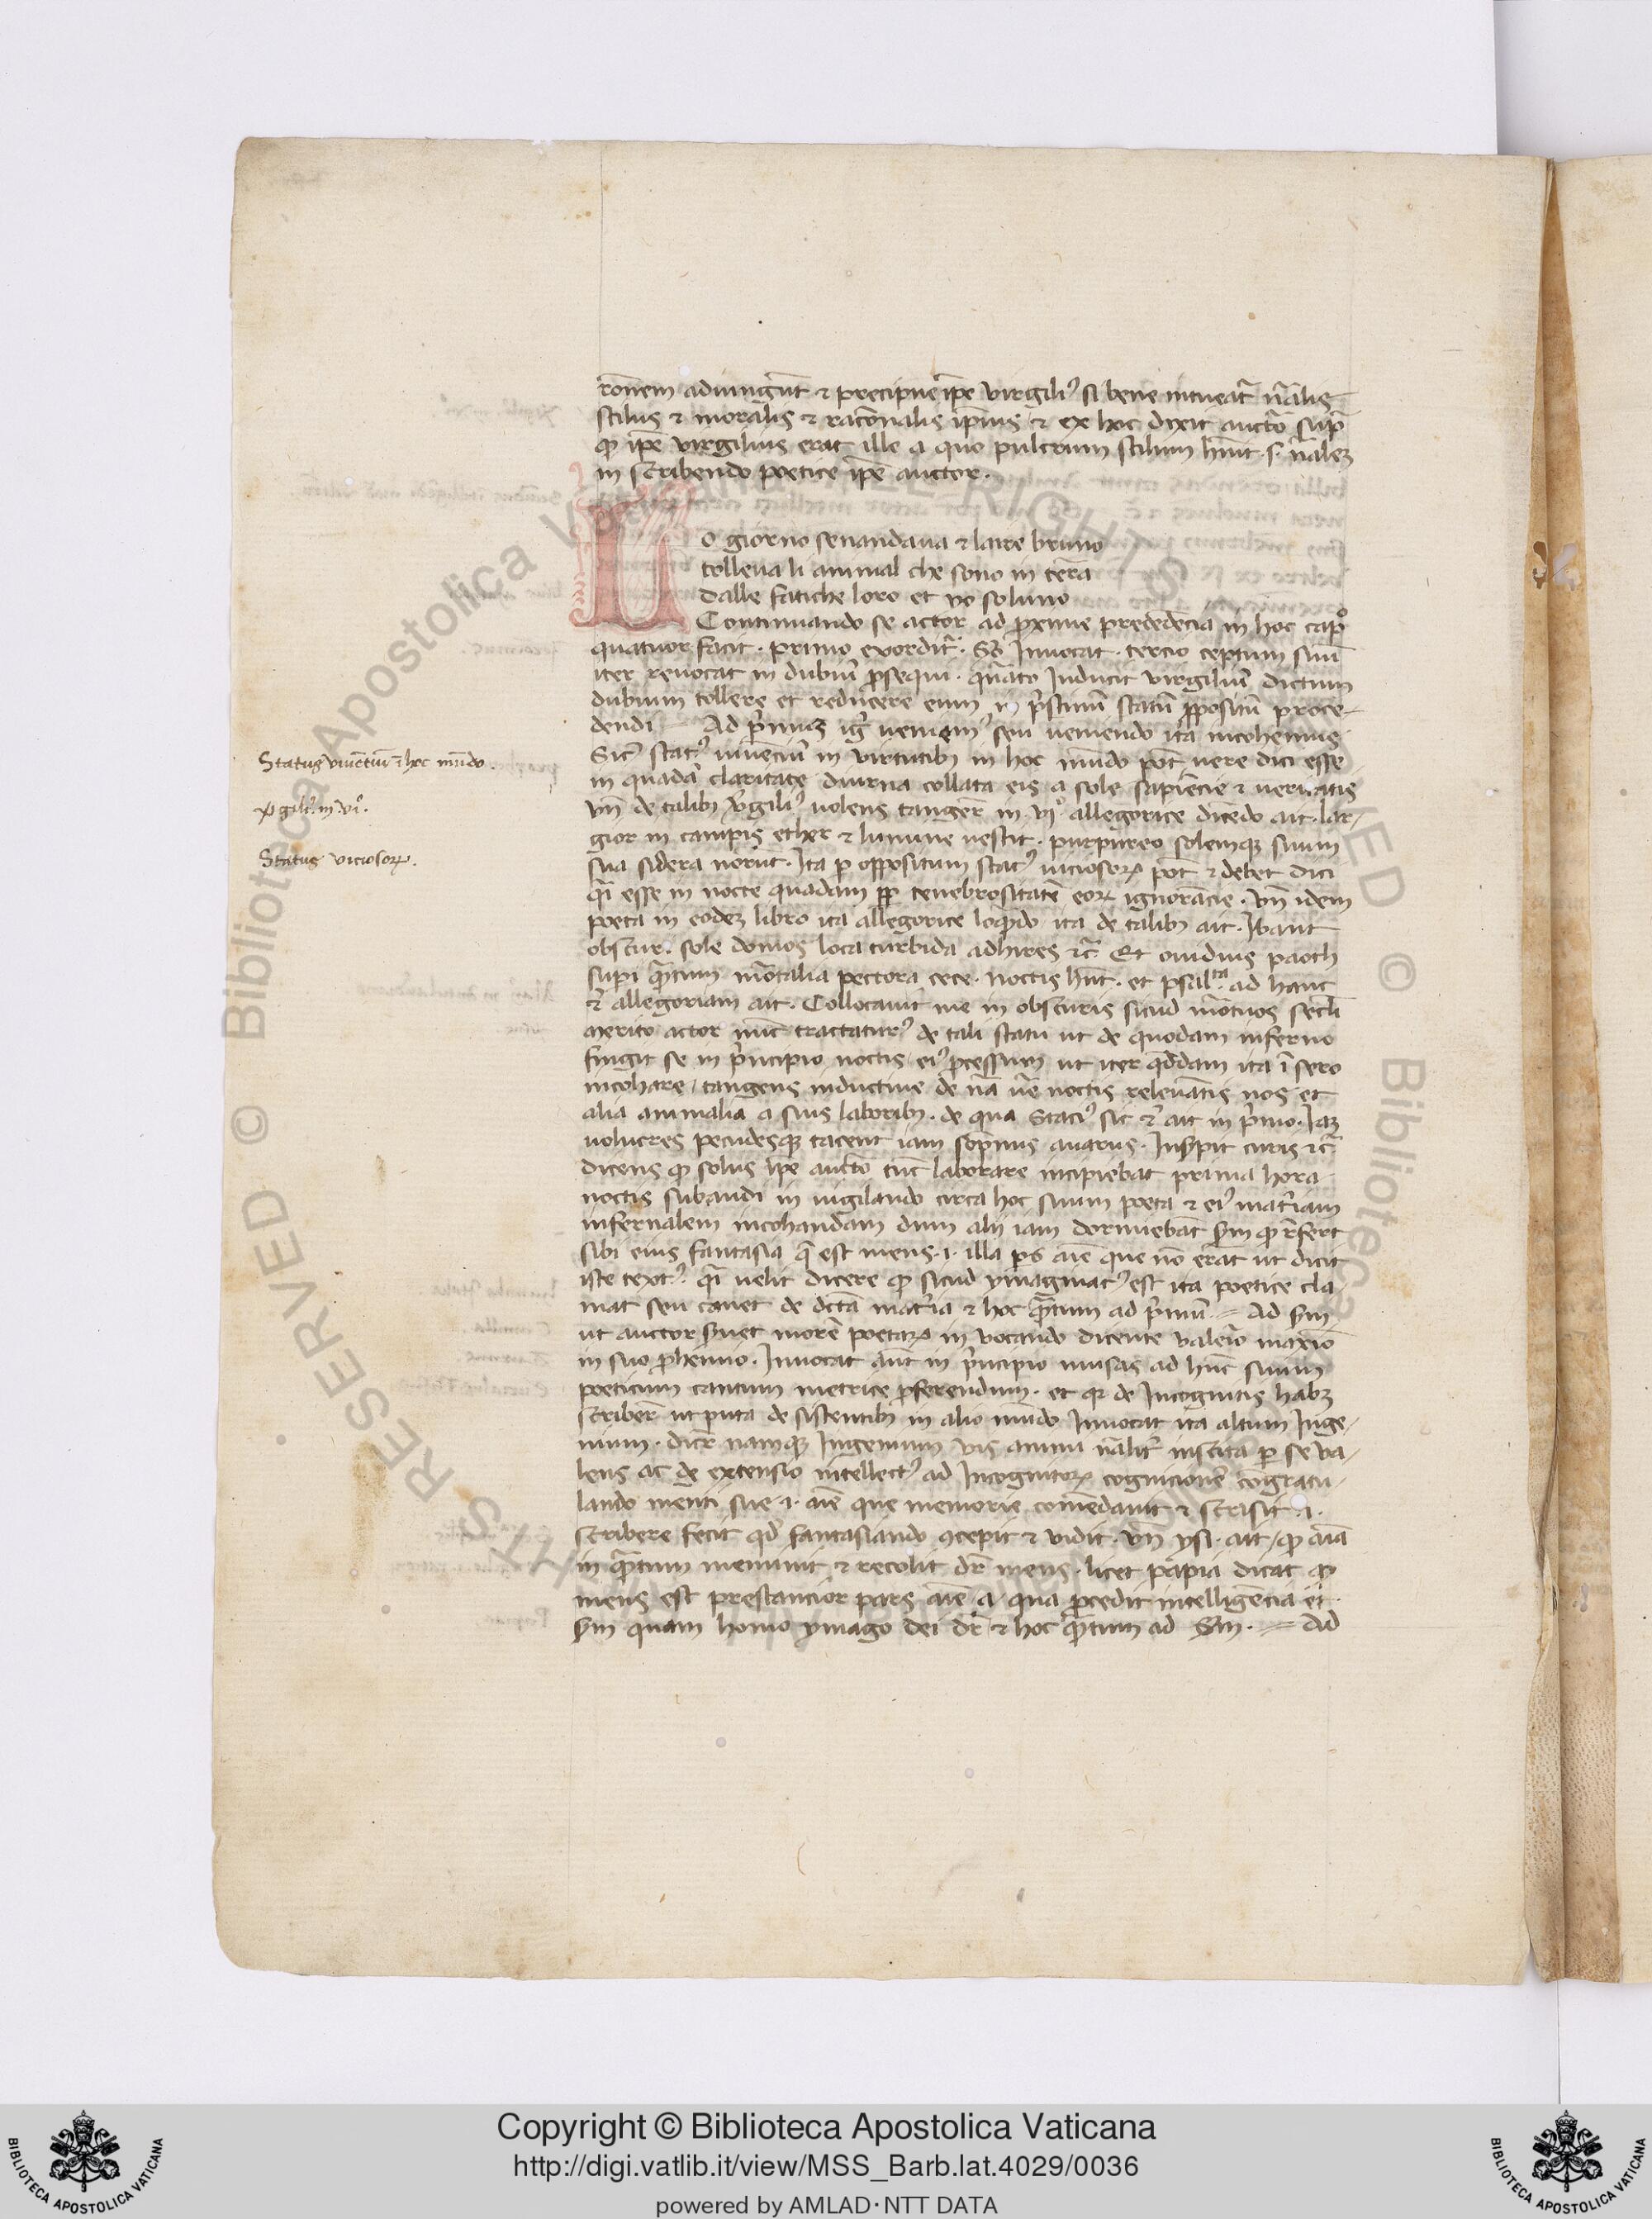 ronem adiungunt & precipue ipe virgili9 si bene intueat nalis
stilus & moralis & racionalis ipius & ex hoc dixit auctor supra
qp ipe virgilius erat ille a quo pulcrum stilum hnt .s. nalez
in scribendo poetice ipe auctor.
Lo giorno senandaua & laire bruno
tolleua li animal che sono in tera
dalle fatiche loro et yo soluno
Continuando se actor ad pxime precedencia in hoc capo
quatuor facit. primo exorditr. So Inuocat. tercio ceptum suum
iter reuocat in dubium psequi. quarto inducit virgilium dictum
dubium tollere et reducere eum in pristinum statum ppositum proce-
dendi Ad primuz igr ueniemus seu ueniendo ita incohemus
Sicut stat9 uiuenciu in virtutib3 in hoc mundo pot uere dici esse
in quada claritate diurna collata eis a sole sapiencie & ueritatis
vn de talib3 Virgili9 uolens tanger in vjo allegorice dicedo ait. lar-
gior in campis ether & lumine uestit. purpureo solemq3 suum
sua sidera norut. Ita p oppositum stat9 uiciosor pot & debet dici
qi esse in nocte quadam pp tenebrositate eor ignorancie. vn idem
poeta in eodez libro ita allegorice loquedo ita de talib3 ait. Ibant
obscur. sole domos loca turbida adhires &c Et ouidius
supi quantum mortalia pectora cece. noctis hnt. et psalta ad hanc
& allegoriam ait. Collocauit me in obscuris sicud mortuos secli
merito actor nunc tractatur9 de tali statu ut de quodam inferno
fingit se in principio noctis ei9 pcessum ut iter qddam ita i sero
incohare, tangens inductiue de na ue noctis releuatis nos et
alia animalia a suis laborib3. de qua Staci9 sic & ait in primo. Iaz
uolucres pecudesq3 tacent iam sopnus auarus. Inserpit curis &c
dicens qp solus ipe auctor tuc laborare incipiebat prima hora
noctis subaudi in uigilando circa hoc suum poeta & ei9 materiam
infernalem incohandam dum alij iam dormiebat sm qp refert
sibi eius fantasia q est mens .i. illa ps aie que no erat ut dicit
iste text9. qi uelit dicere qp sicud ymaginat9 est ita poetice cla
mat seu canet de dcta materia & hoc quantum ad primu = Ad sm
ut auctor seruet more poetar in vocando dicente valerio maxio
in suo phemio. Inuocat aut in principio musas ad huc suum
poeticum cantum metrice pferendum. et qr de Incognitis habz
scriber ut puta de sistentib3 in alio mudo Inuocat ita altum Inge-
nium. dicr namq3 Ingenium vis animi nalitr insita p se va-
lens ac de extensio intellect9 ad Incognitor cognicione congratu-
lando menti sue .i. aie que memorie comendauit & scrisit .i.
scribere fecit qd fantasiando concepit & vidit. vn ysi. ait, qp aia
in quantum meminit & recolit dr mens. licet papia dicat qp
mens est prestancior pars aie a qua pcedit intelligencia et
sm quam homo ymago dei dr & hoc quantum ad Sm. = Ad
Status viuetiu i hoc mudo.
Virgili9. in vio.
Status viciosor.
Copyright © Biblioteca Apostolica Vaticana
http://digi.vatlib.it/view/MSS_Barb.lat.4029/0036
powered by AMLAD·NTT DATA
BIBLIOTECA APOSTOLICA VATICANA
BIBLIOTECA APOSTOLICA VATICANA